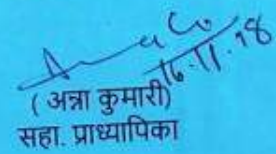 16.11.18
( अन्ना कुमारी)
सहा. प्राध्यापिका